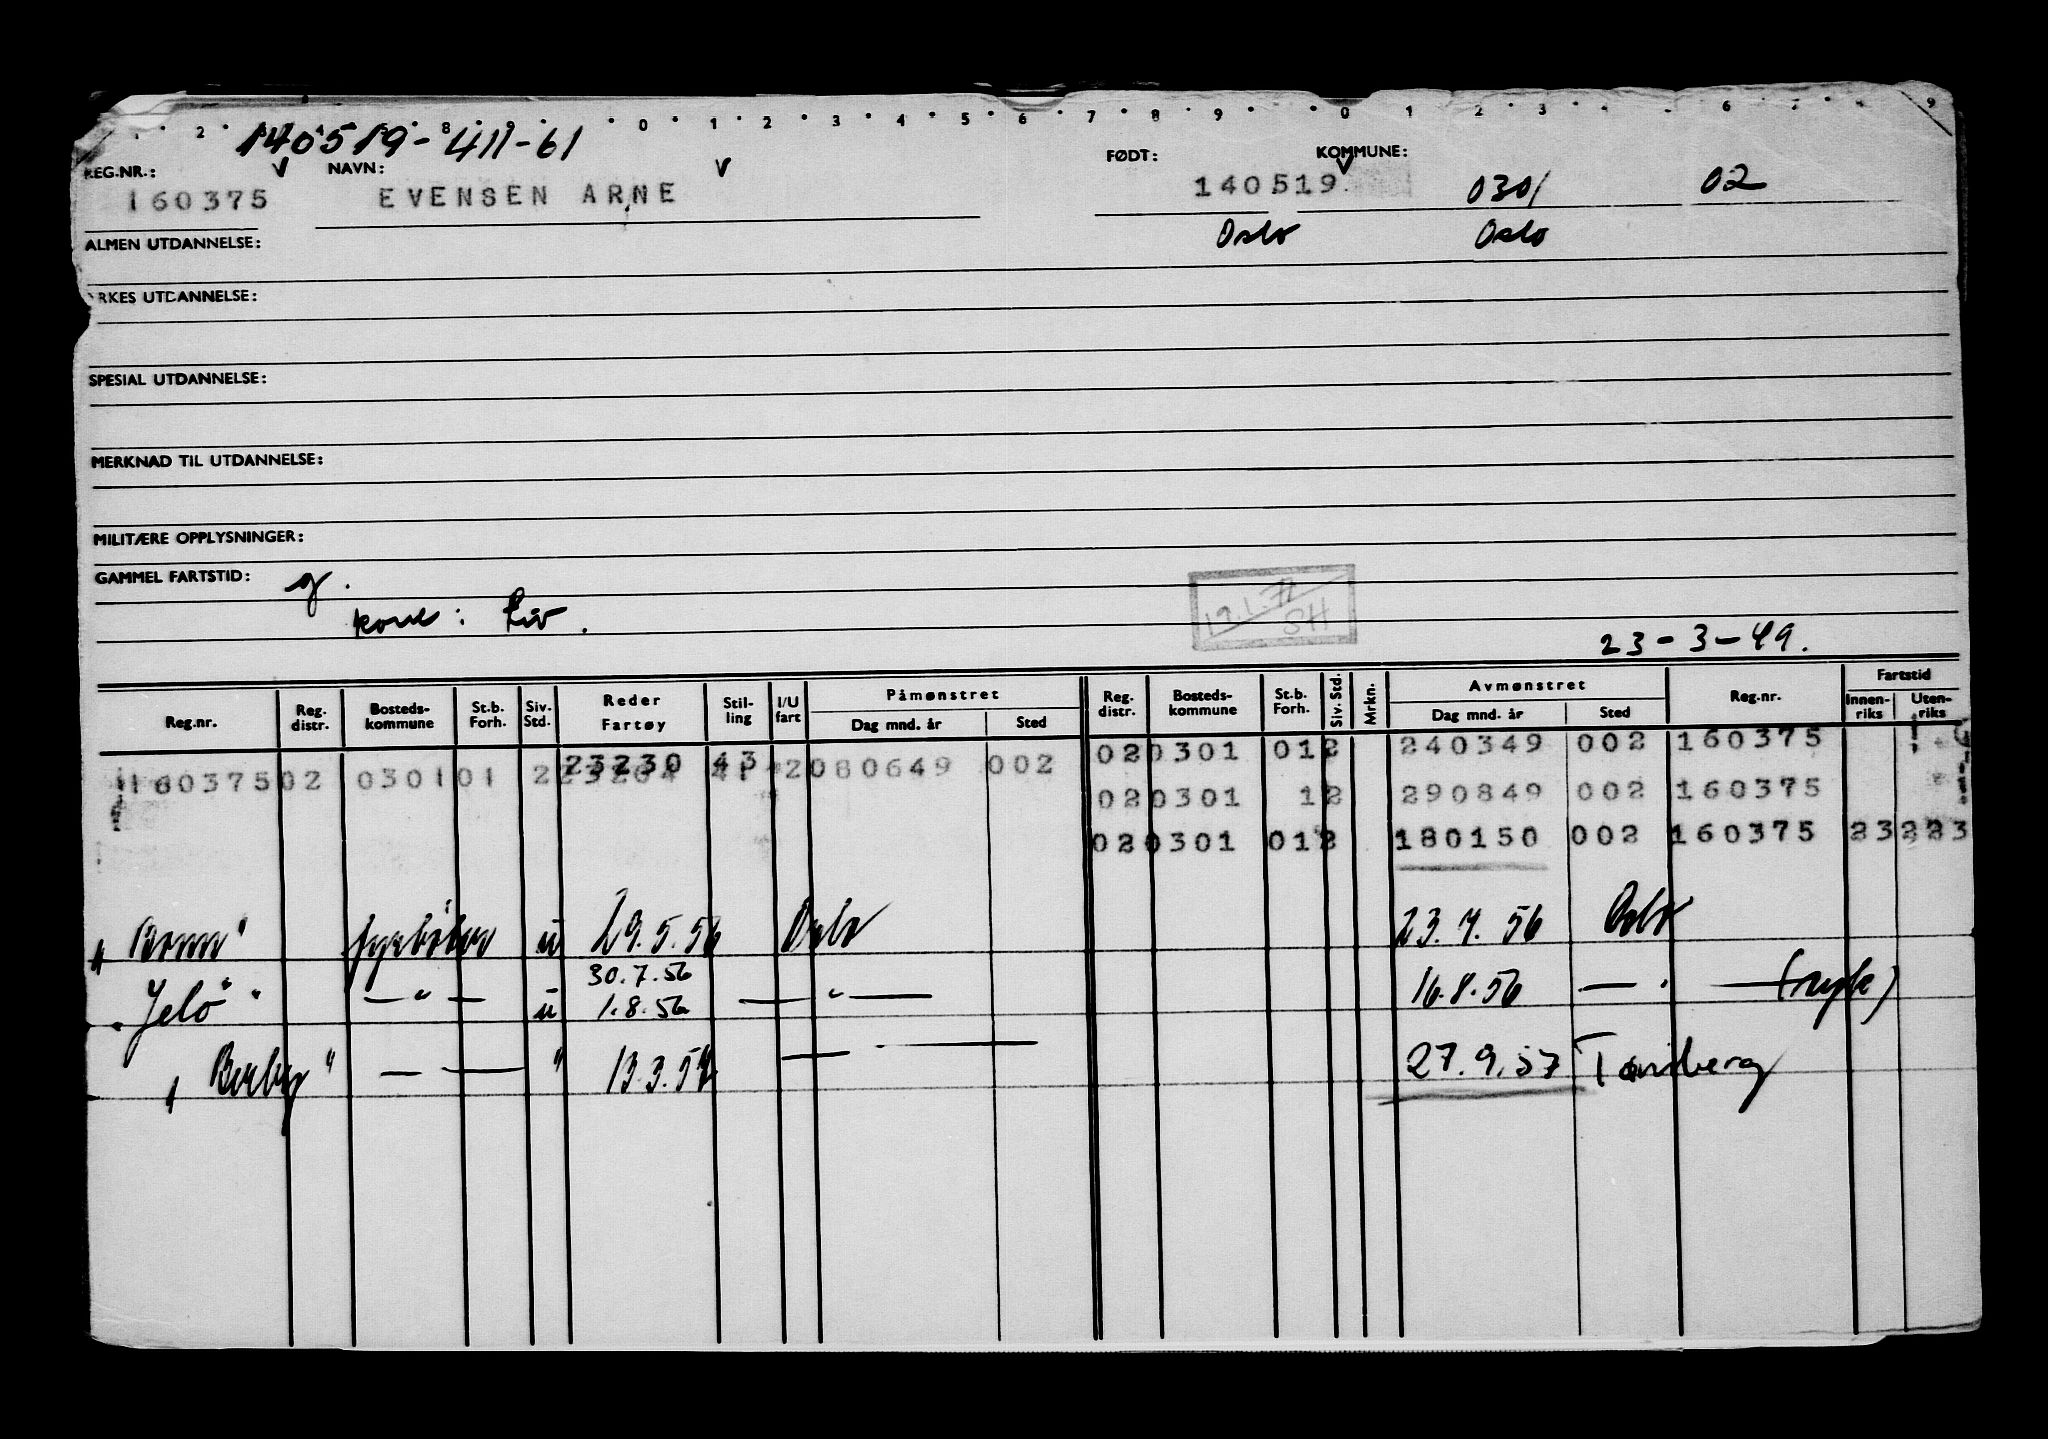 1 2 8 9 0 1 2 3 4 5 6 7 8 9 0 1 2 3 6 7 9
140519-411-61
REG.NR.: NAVN: FØDT: KOMMUNE:
160375 EVENSEN ARNE 140519 0301 02
Oslo Oslo
ALMEN UTDANNELSE:
YRKES UTDANNELSE:
SPESIAL UTDANNELSE:
MERKNAD TIL UTDANNELSE:
MILITÆRE OPPLYSNINGER:
GAMMEL FARTSTID: g.
kone: Liv.
19.1.71 SH
23-3-49.
Reg.nr. Reg. distr. Bosteds-kommune St.b. Forh. Siv. Std. Reder Fartøy Stil-ling I/U fart Påmønstret Dag mnd. år Sted Reg. distr. Bosteds-kommune St.b. Forh. Siv. Std. Mrkn. Avmønstret Dag mnd. år Sted Reg.nr. Fartstid Innen-riks Uten-riks
020301 012 240349 002 160375
160375 02 0301 01 2 23230 43 2 080649 002
020301 12 290849 002 160375
020301 012 180150 002 160375 23 223
u 29.5.56 Oslo 23.7.56 Oslo
30.7.56
"Jelö" — " — u 1.8.56 — " — 16.8.56 — " — (syk)
" — — " 13.3.57 — — 27.9.57 Tønsberg